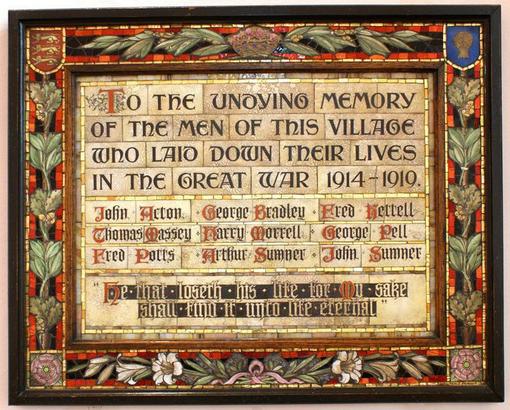 To the undying memory
of the men of this village
who laid down their lives
in the Great War 1914-1919.
John Acton · George Bradley · Fred Kettell
Thomas Massey · Harry Morrell · George Pell
Fred Potts · Arthur Sumner · John Sumner
"He that loseth his life for My sake
shall find it unto life eternal"